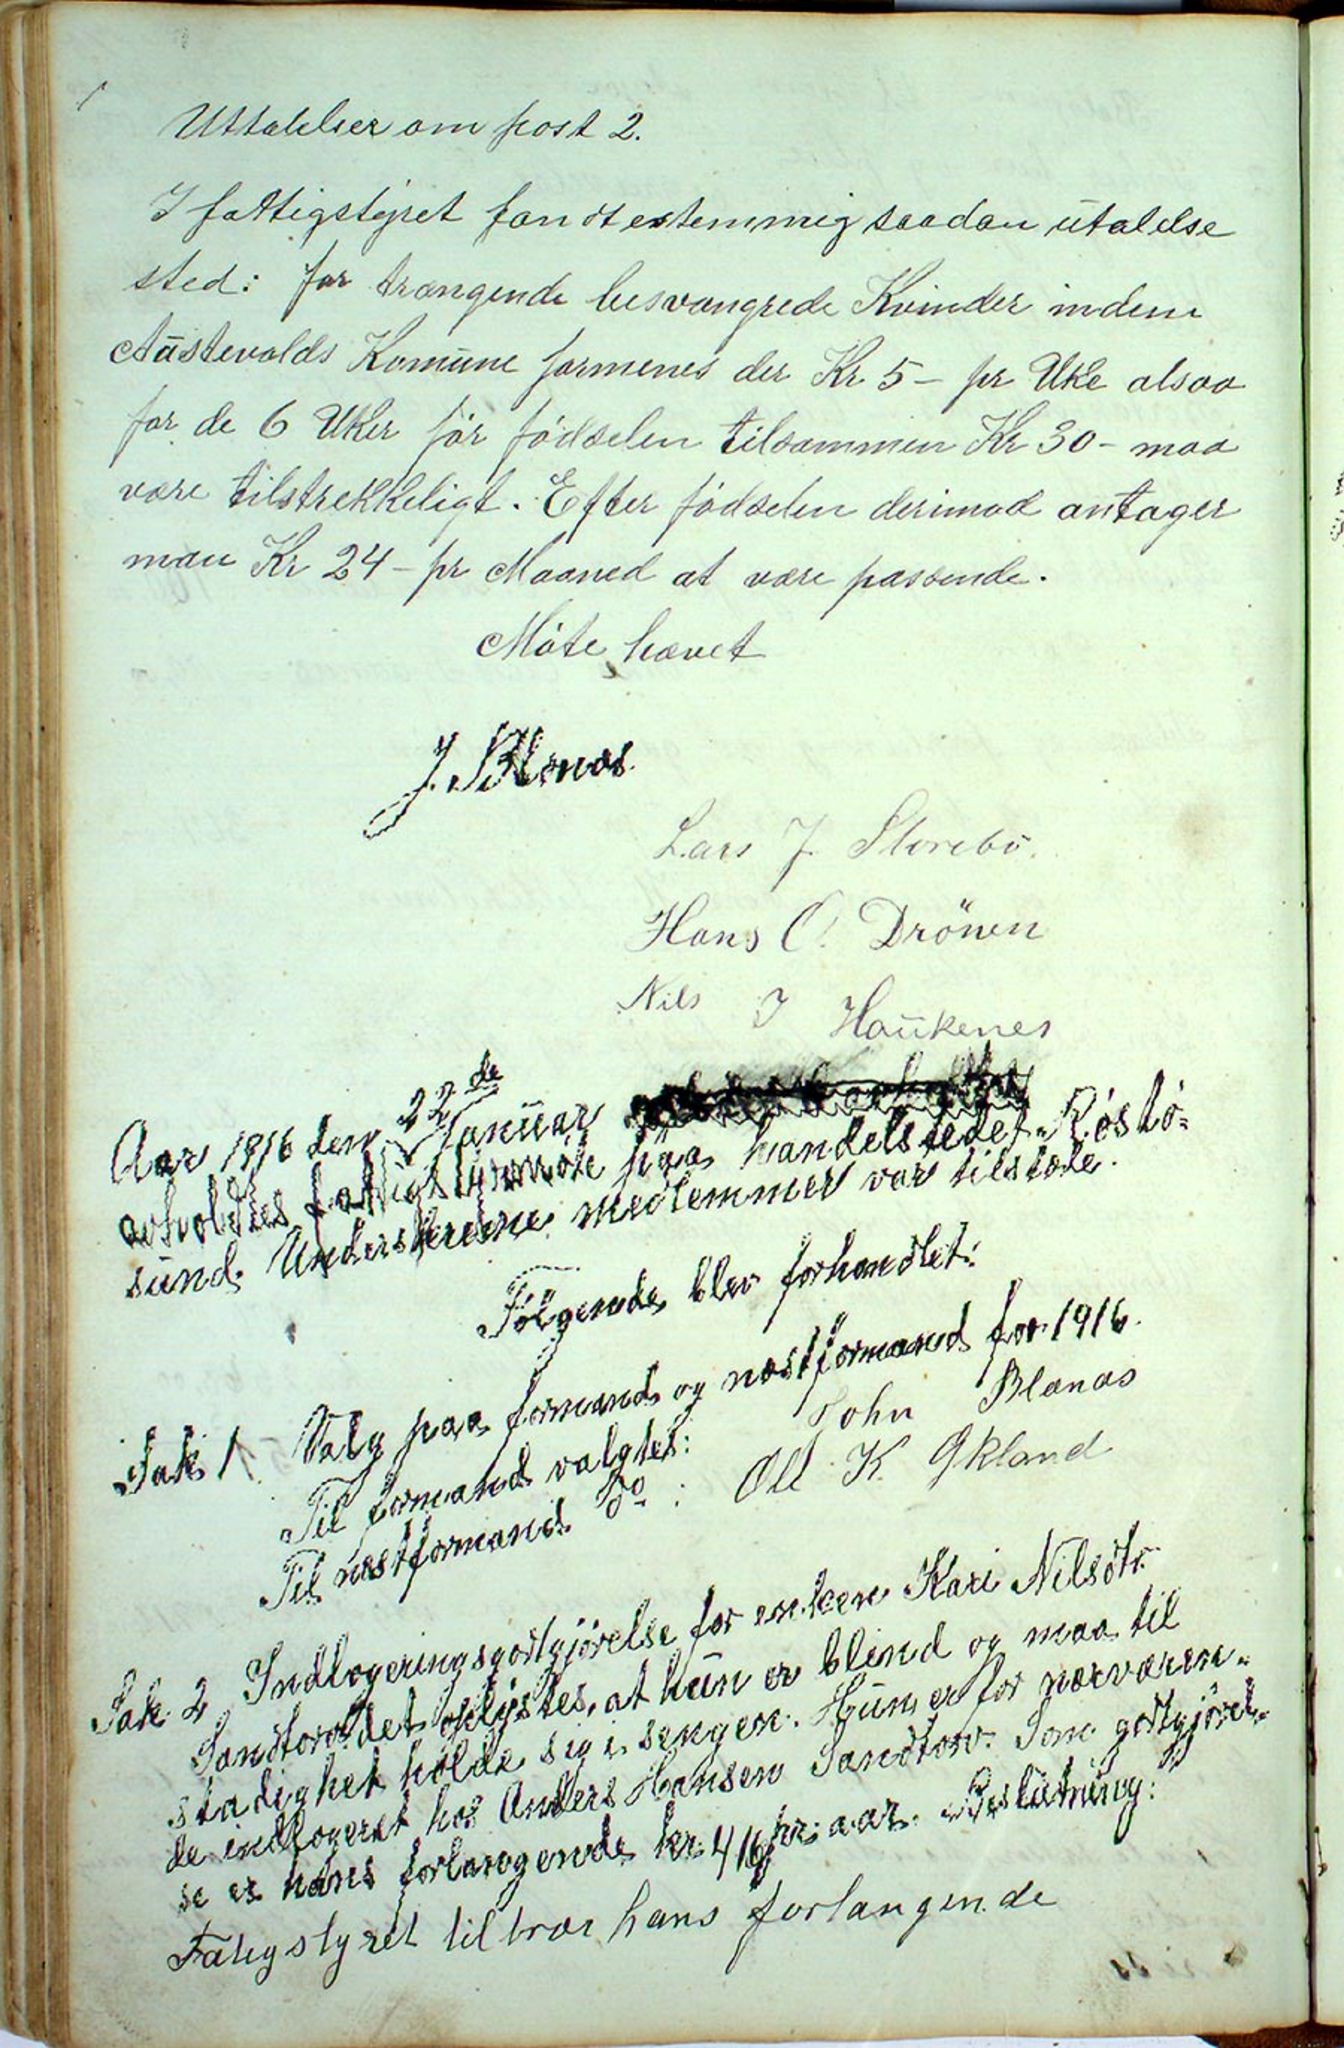 Uttalelser om post 2.
I fattigstyret fandt enstemmig saadan utalelse
sted: for trængende besvangrede Kvinder inden
Austevolds Komune formenes der Kr 5- pr Uke alsaa
for de 6 Uker før fødselen tilsammen Kr 30- maa
være tilstrekkeligt. Efter fødselen derimod antager
man Kr 24- pr Maaned at være passende.
Møte hævet
J. Blænæs.
Lars J. Storebö.
Hans O. Drönen
Nils J Haukenes
Aar 1916 den 22de Januar
avholdtes fattigstyremøte paa handelstedet Røstø=
sund. Underskrevne medlemmer var tilstæde.
Følgende blev forhandlet:
Sak 1. Valg paa formand og næstformand for 1916.
Til formand valgtes: John Blænæs
Til næstformand Do: Ole K. Økland
Sak 2 Indlogeringsgodtgjørelse for enken Kari Nilsdtr.
Sandtorv. det oplystes, at hun er blind og maa til
stadighet holde sig i sengen. Hun er for nærværen-
de indlogeret hos Anders Hansen Sandtorv. Som godtgjørel-
se er hans forlangende kr. 416 pr. aar. Beslutning:
Fatigstyret tiltrær hans forlangende